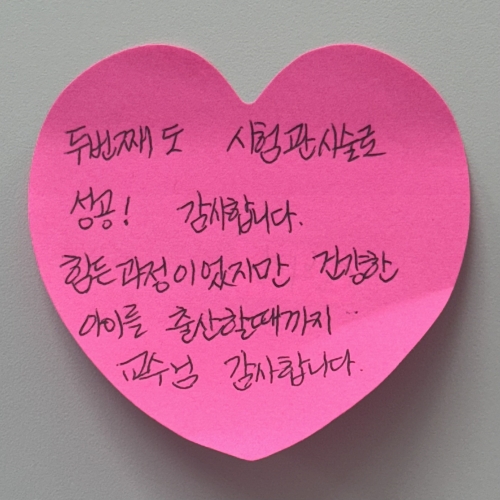 두번째도 시험관시술로
성공! 감사합니다.
힘든과정이었지만 건강한
아이를 출산할때까지..
교수님 감사합니다.